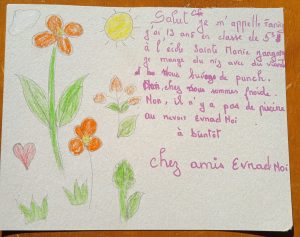 Salut je m'appelle
j'ai 13 ans en classe de 5e
à l'école Sainte Marie
je mange du riz avec du
Nous buvage de punch.
Non, chez nous sommes froide.
Non, il n'y a pas de piscine
au revoir Evnad Moi
à bientôt
chez amis Evnad Moi